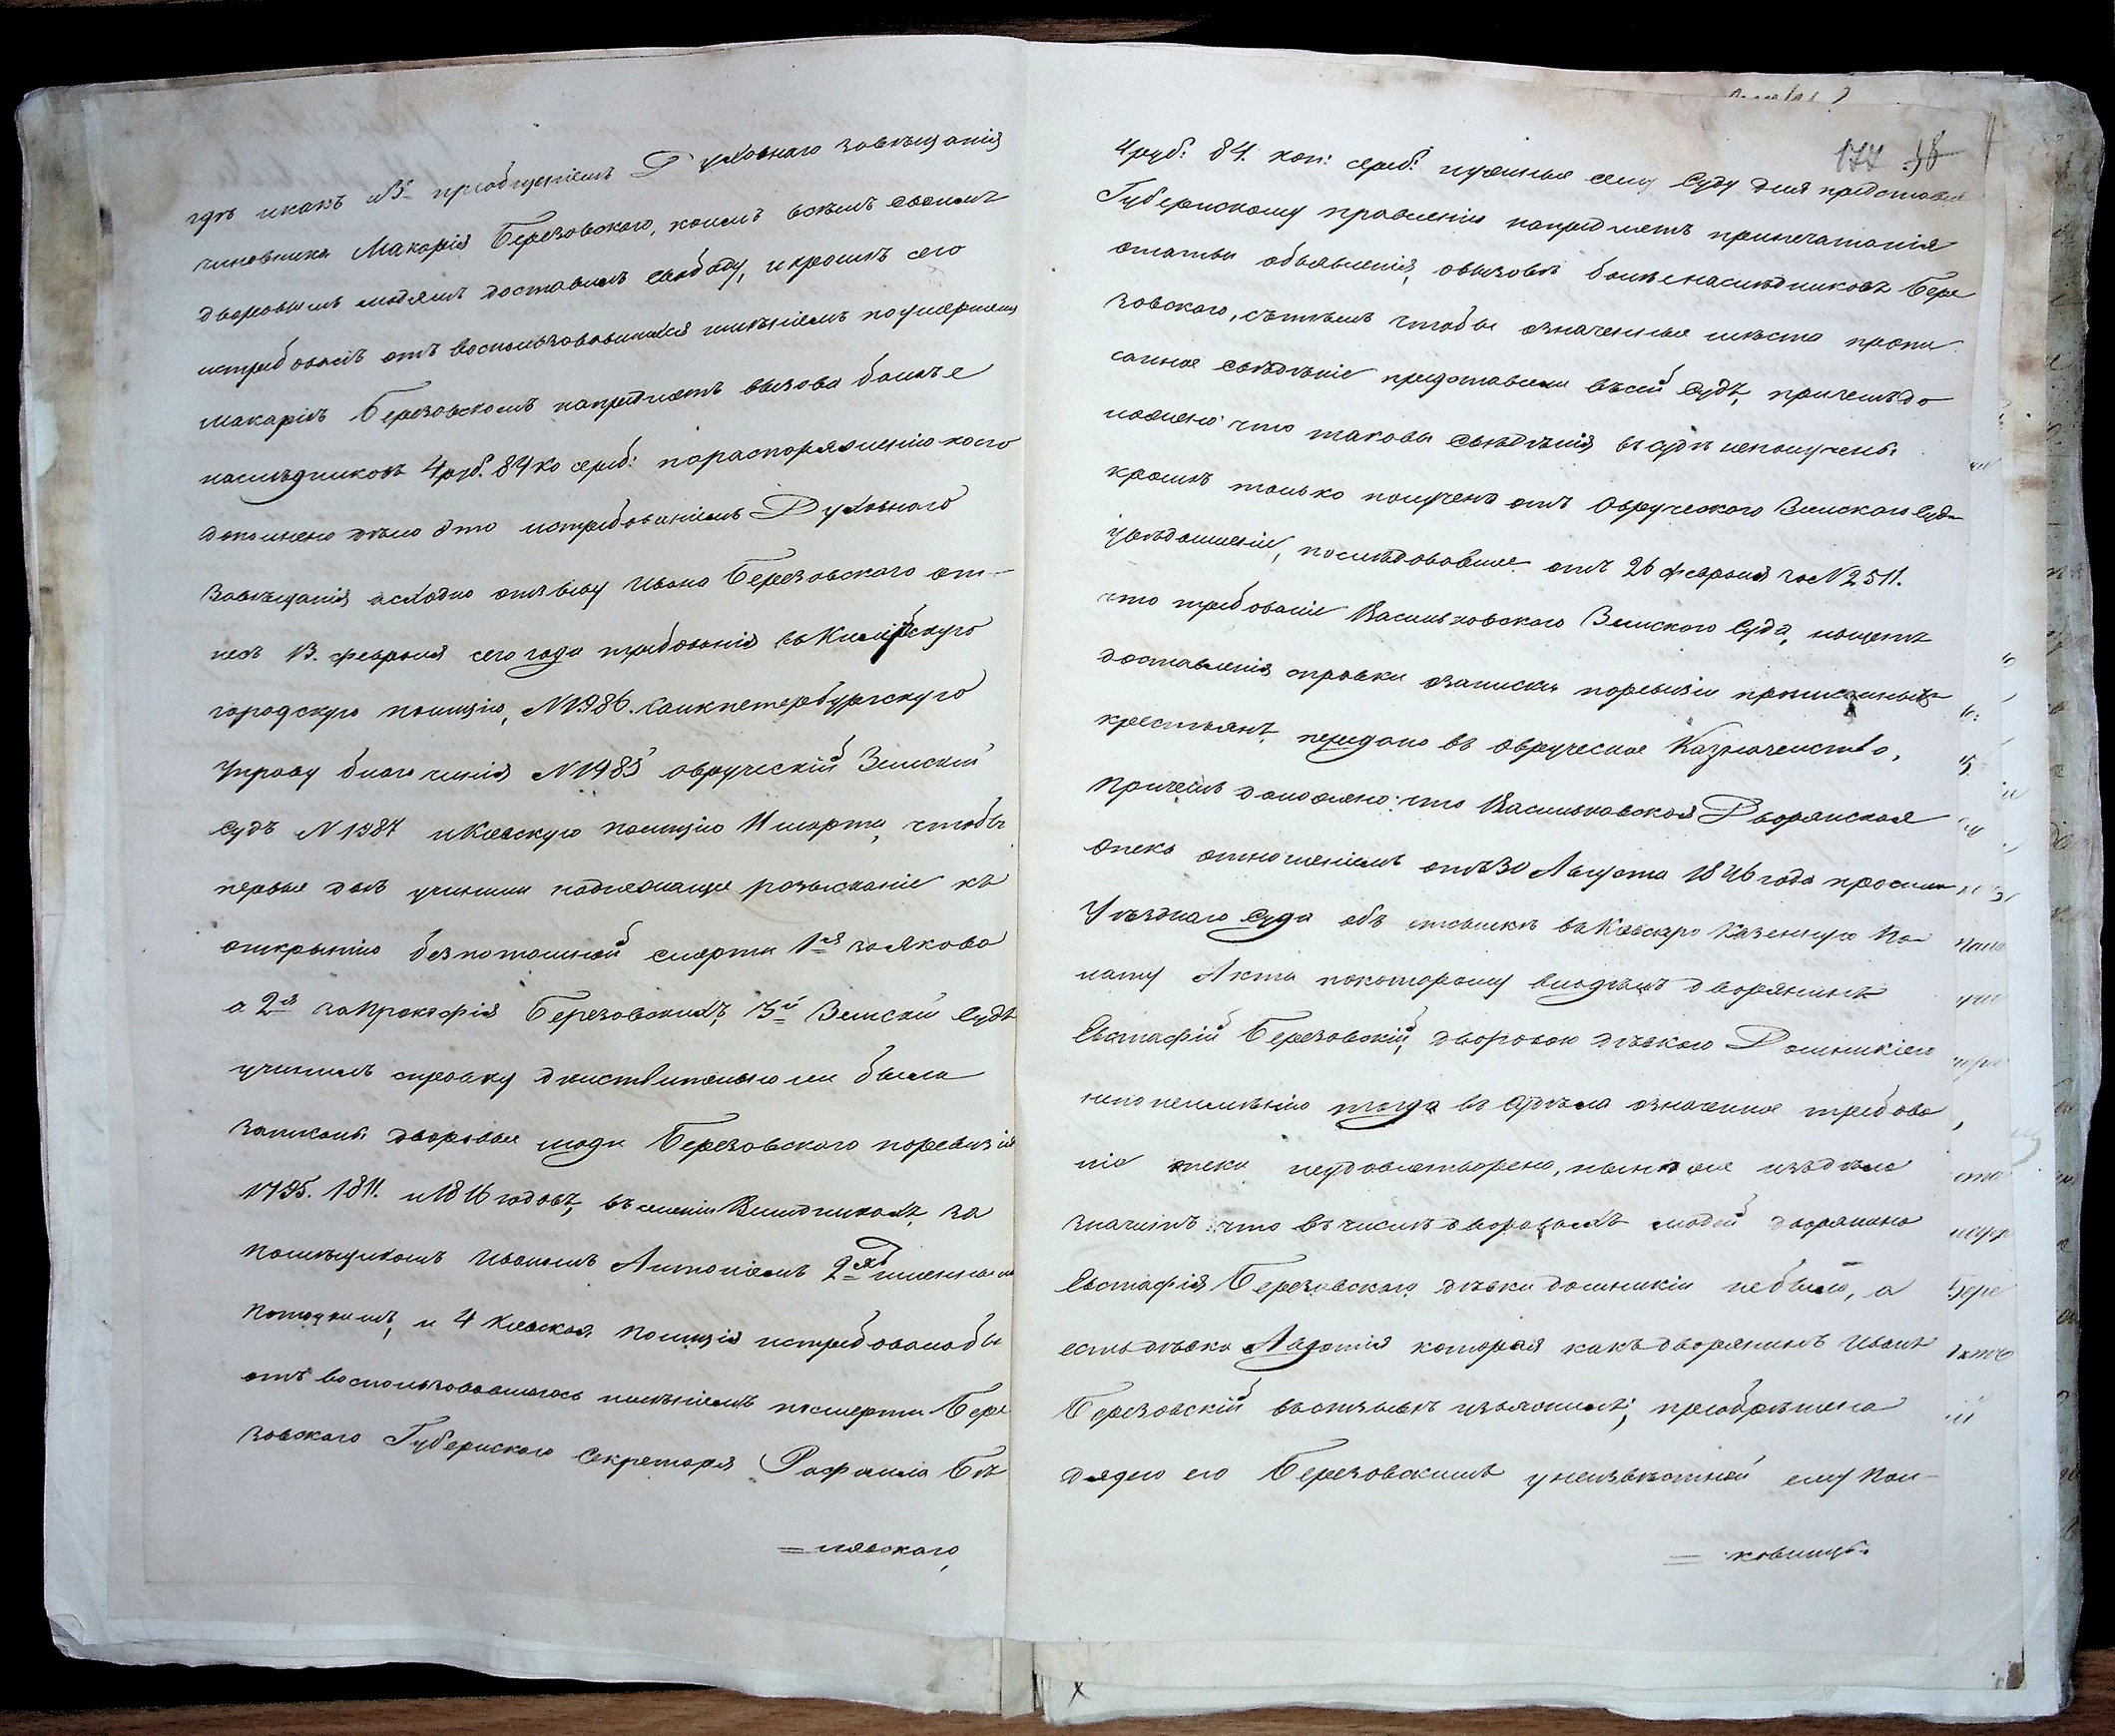 гдѣ и какъ съ приобщеніемъ Духовнаго завѣщанія
чиновника Макарія Березовского, коимъ всѣмъ своимъ
дворовымъ людямъ доставилъ свободу, и кромѣ сего
истребовать отъ воспользовавшихся имѣніемъ по умершемъ
Макаріѣ Березовскомъ на предметъ вызова ближе
наслѣдниковъ 4 руб. 84 ко сереб: по распоряженію коего
дополнено дѣло это истребованіемъ Духовного
Завѣщанія а сходно отзыву Ивана Березовского от-
13. февраля сего года требованія въ
городскую полицію, N 1986. Санкпетербургскую
Управу благочинія N 1985 Овручскій Земскій
Судъ N 1987 и Кіевскую полицію Имарта, чтобы
первые двѣ учинили надлежащее розысканіе къ
открытію безпотомной смерти 1я за Якова
а 2я за Прокофія Березовскихъ, 3й Земскій Судъ
учинилъ справку дѣйствительно ли были
записаны дворовые люди Березовского по ревизіи
1795. 1811. и 1816 годовъ, въ селеніи за
помѣщикомъ Иваномъ Антоніемъ 2хъ именнымъ
Потоцкимъ, и 4 Кіевская полиція истребовала бы
отъ воспользовавшагось имѣніемъ по смерти Бере
зовского Губернского Секретаря Рафаила Бѣ
= лявского,
4 руб: 84. коп: сереб: нужные сему Суду для представл
Губернскому правленію на предметъ припечатанія
статьи объявленія, о вызовѣ ближе наслѣдниковъ Бере
зовского, съ тѣмъ чтобы означенные мѣста пропи
санное свѣдѣніе представили въ сей Судъ, при чемъ до
ложено: что таковы свѣдѣнія въ судѣ не получены
кромѣ только полученъ отъ Овручского Земского Суда
увѣдомленіе, послѣдовавшее отъ 26 февраля за N 2511.
что требованіе Васильковского Земского Суда, нащетъ
доставленія справки о записки по ревизіи прописанныхъ
крестьянъ, передано въ Овручское Казначейство,
При чемъ доложено: что Васильковская Дворянская
Опека отношеніемъ отъ 30 Августа 1846 года просила
Уѣзднаго Суда объ отсылкѣ въ Кіевскую Казенную Па-
лату Акта по которому владѣлъ дворянинъ
Евстафій Березовскій, дворовою дѣвкою Домникіею
но по неимѣнію тогда въ Судѣ дѣла означенное требова
ніе опеки неудовлетворено, нынѣ же изъ дѣла
значитъ: что въ числѣ дворовыхъ людей дворянина
Евстафія Березовского дѣвки домникіи не было, а
есть дѣвка Авдотія которая какъ дворянинъ Иванъ
Березовскій въ отзывѣ изъяснилъ, преобрѣтена
дядею его Березовскимъ у неизвѣстной ему Пол-
= ковницы.